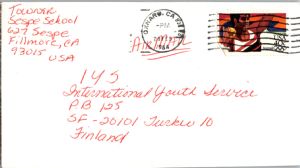 Towner
Sespe School
627 Sespe
Fillmore, CA
93015
USA
OXNARD, CA
PM
AIRMAIL
IYS
International Youth Service
PB 125
SF-20101 Turku 10
Finland